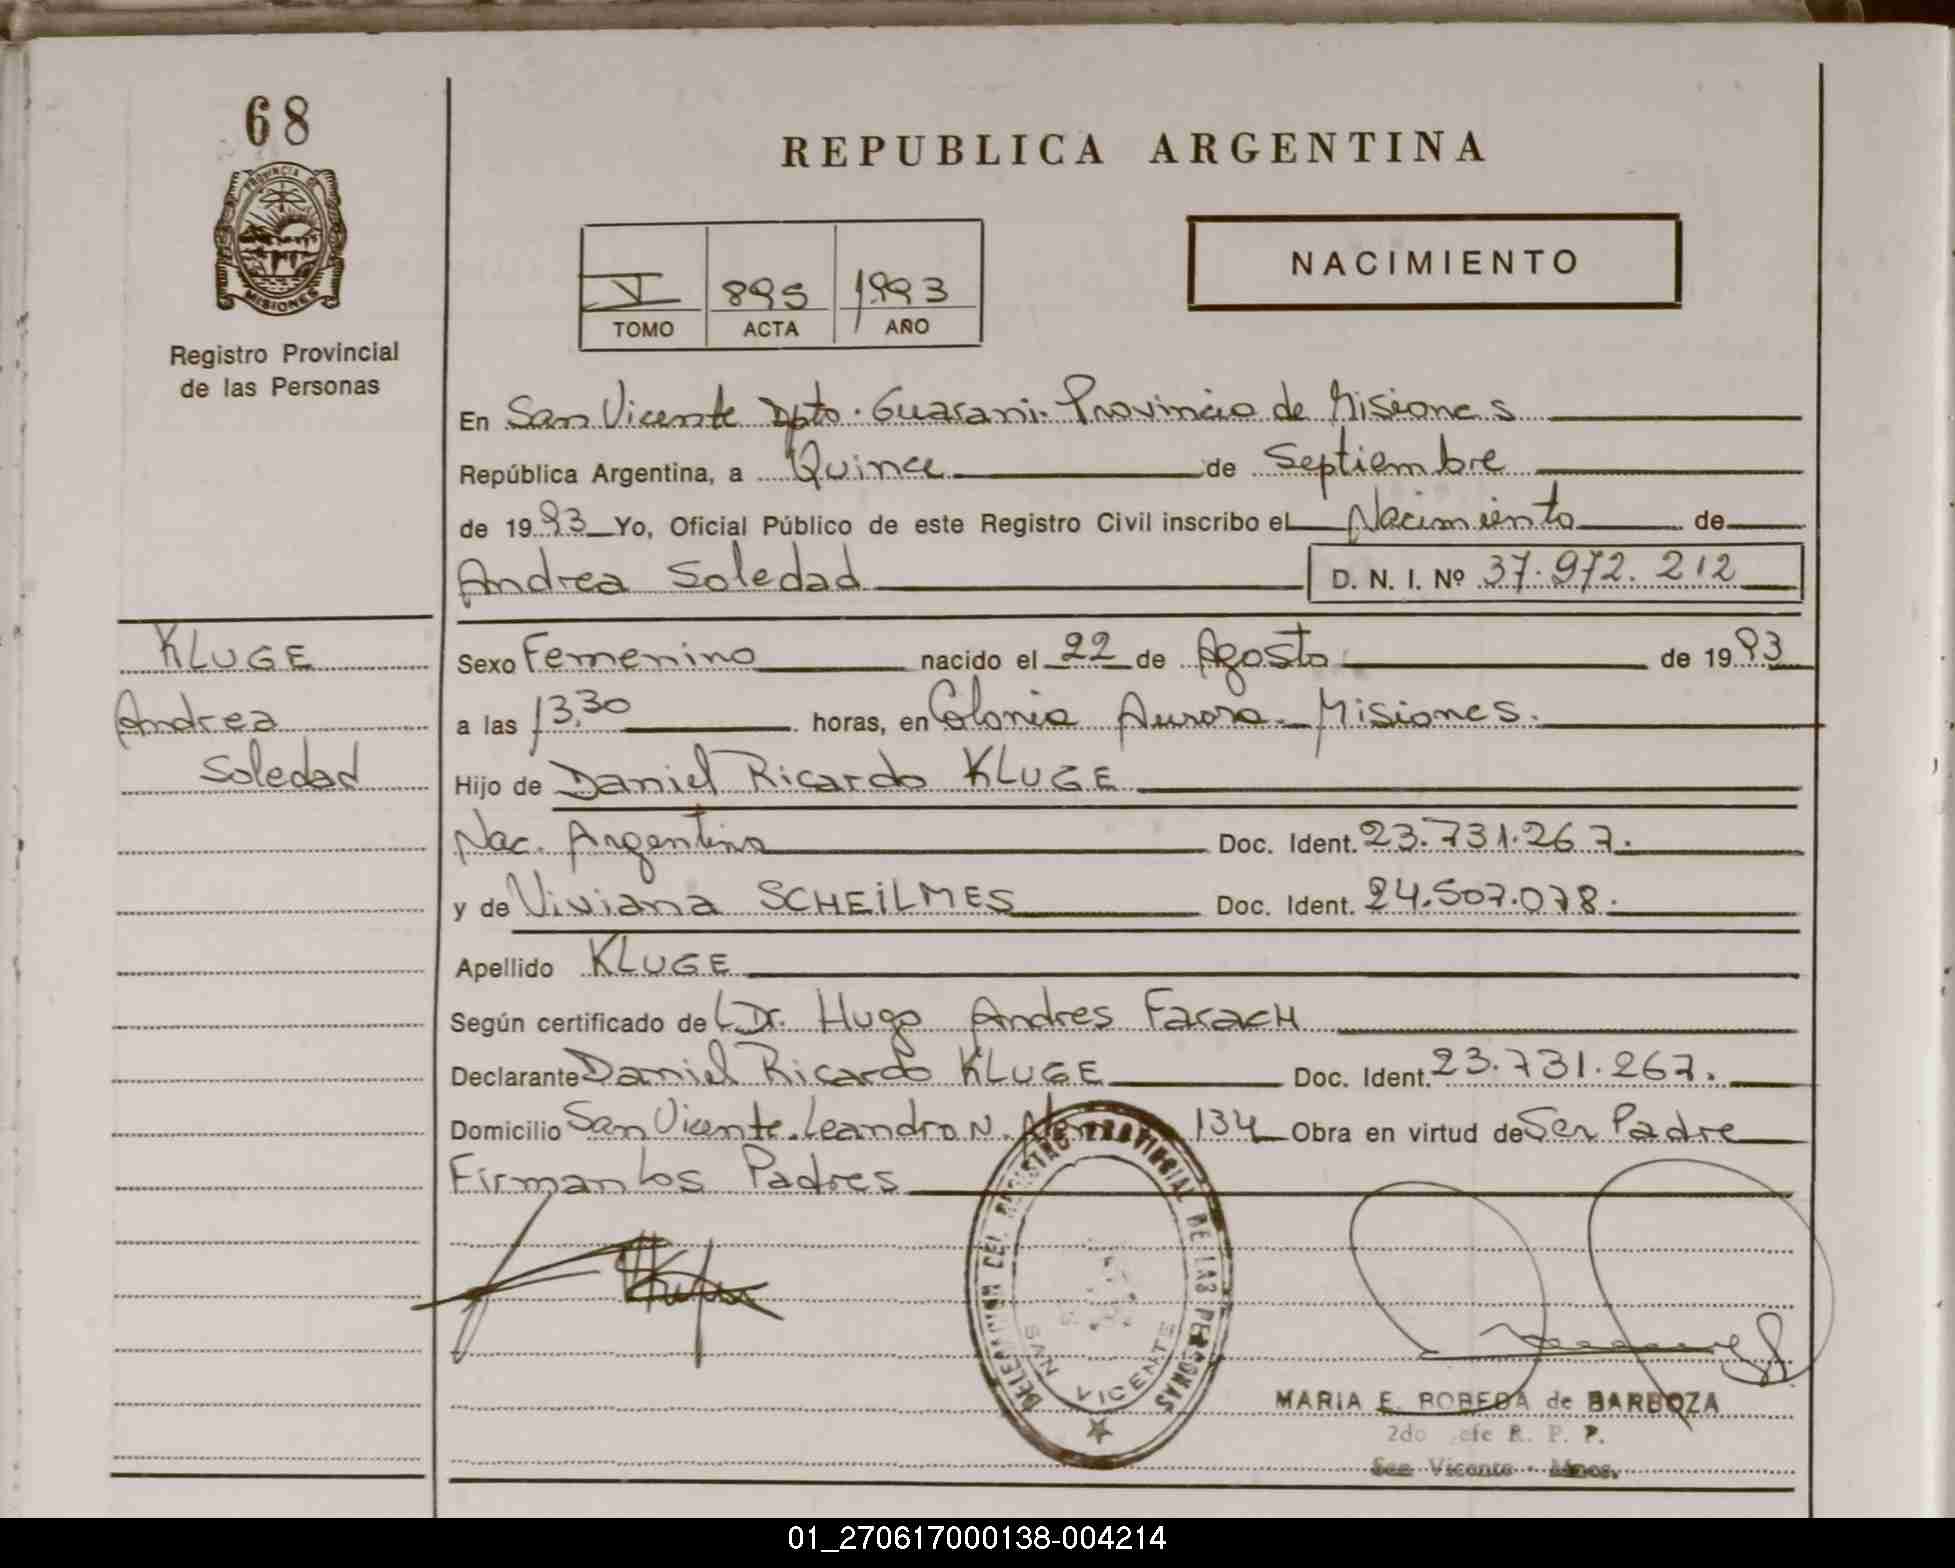 68
PROVINCIA DE
MISIONES
Registro Provincial
de las Personas
REPUBLICA ARGENTINA
NACIMIENTO
V 895 1993
TOMO ACTA AÑO
En San Vicente Dpto. Guarani. Provincia de Misiones
República Argentina, a Quince de Septiembre
de 1993 Yo, Oficial Público de este Registro Civil inscribo el Nacimiento de
Andrea Soledad D. N. I. Nº 37.972.212
KLUGE
Andrea
Soledad
Sexo Femenino nacido el 22 de Agosto de 1993
a las 13.30 horas, en Colonia Aurora. Misiones.
Hijo de Daniel Ricardo KLUGE
Nac. Argentina Doc. Ident. 23.731.267.
y de Viviana SCHEiLMES Doc. Ident. 24.507.078.
Apellido KLUGE
Según certificado del Dr. Hugo Andres FaracH
Declarante Daniel Ricardo KLUGE Doc. Ident. 23.731.267.
Domicilio San Vicente. Leandro N. Alem 134 Obra en virtud de Ser Padre
Firman los Padres
DELEGACION DEL REGISTRO PROVINCIAL DE LAS PERSONAS
SAN VICENTE
MARIA E. ROBEDA de BARBOZA
2do Jefe R. P. P.
San Vicente - Mnes.
01_270617000138-004214